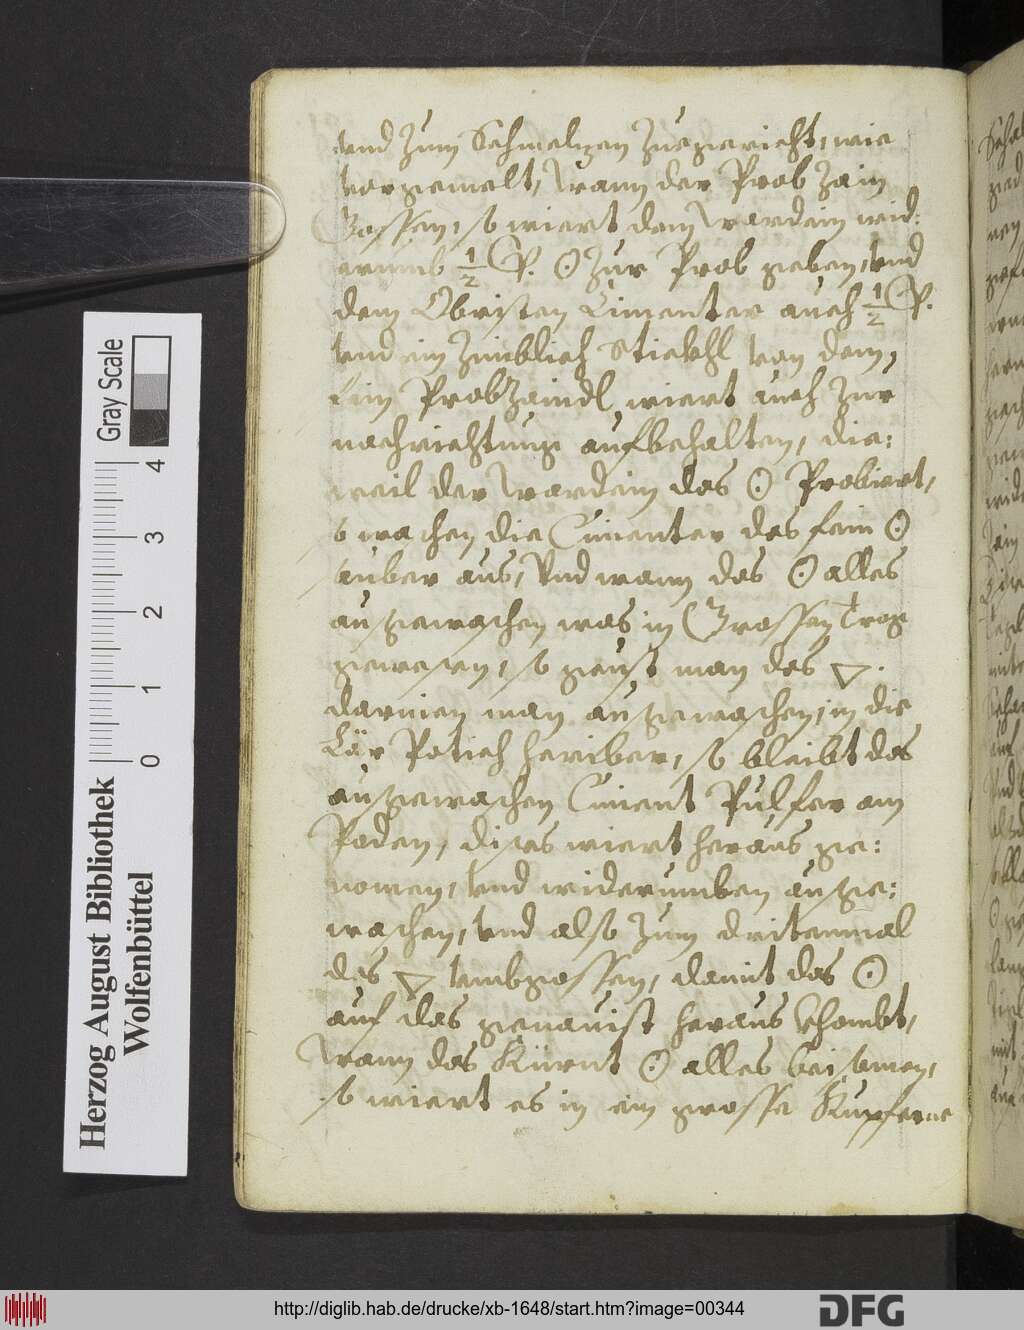 vnd zum Schmelzen zuegericht, wie
vorgemelt, Wann der Prob Zain
Gossen, so wiert dem Wardein wid:
erumb 1/2 ☉ zur Prob geben, vnd
dem Obristen Cimenter auch 1/2
vnd ein zimblich Stickhl von dem,
ein ProbZaindl wiert auch zur
nachrichtung aufbehalten, die:
weil der Wardein das ☉ Probiert,
so waschen die Cimenter das fein ☉
sauber aus, Vnd wann das ☉ alles
ausgewaschen was im Grossen Trog
gewesen, so geust man das ▽.
darinen man ausgewaschen, in die
Lär Potich heriber, so bleibt das
ausgewaschen Ciment Pulfer am
Poden, dises wiert heraus ge:
nomen, vnd widerumben ausge:
waschen, vnd also zum dritenmal
das ▽ vmbgossen, damit das ☉
auf das genauist heraus khombt,
Wann das Kürnt ☉ alles beisamen,
so wiert es in ein grosse Kupferne
Gray Scale
0 1 2 3 4
Herzog August Bibliothek
Wolfenbüttel
http://diglib.hab.de/drucke/xb-1648/start.htm?image=00344
DFG